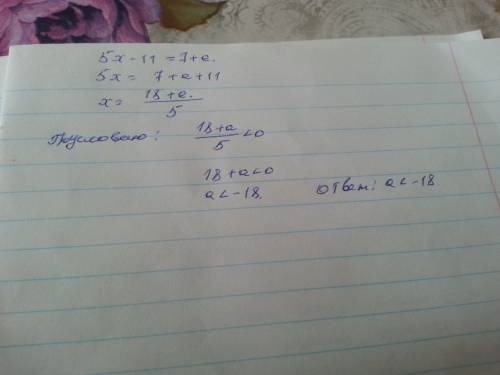 5x - 11 = 7+a.
5x = 7+a+11
x = \frac{18+a.}{5}
По условию: \frac{18+a}{5} <0
18+a<0
a<-18. Ответ: a<-18